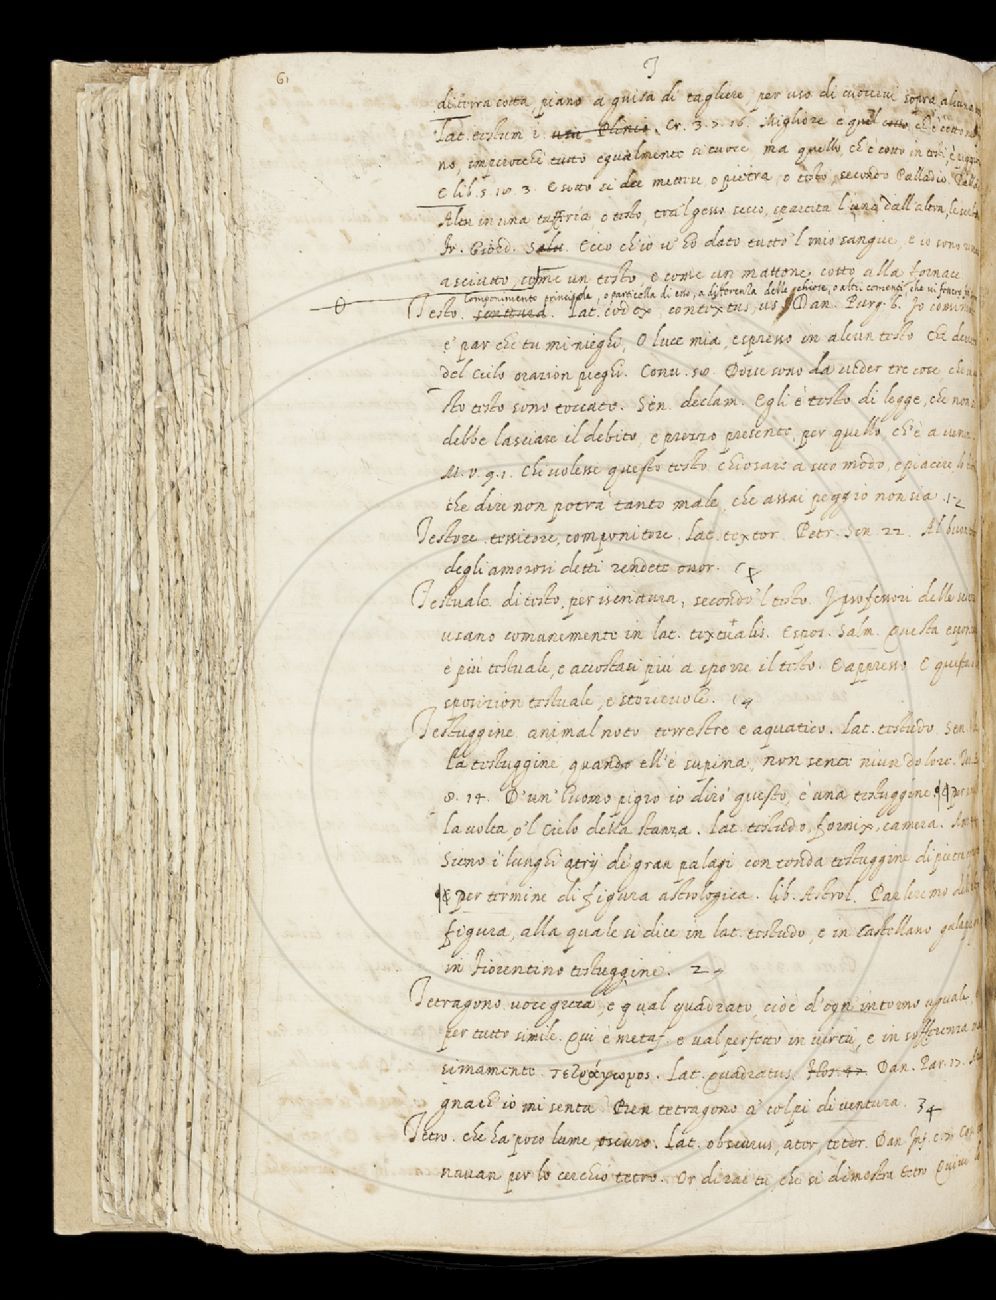 6.
T
di terra cotta, piano a guisa di tagliere, per uso di cuocervi sopra alcuna
Lat. testum i. Cr. 3. 7. 16. Migliore e quel ch'è cotto
no, imperocchè tutto egualmente si cuoce, ma quello, ch'è cotto in testi, è
E lib. 5. 3. E sotto si dee mettere, o pietra, o testo, secondo Palladio.
Altri in una o testo, tra 'l gesso secco, sparsita l'una dall'altra,
Fr. Giord. Salu. Ecco ch'io v'ho dato tutto 'l mio sangue, e io sono
asciutto, come un testo, e come un mattone cotto alla fornace
Componimento principale, o particella di esso, a differenza delle chiose, o altri comenti, che vi
Testo. scrittura. Lat. codex, contextus, us. Dan. Purg. 6. Io cominciai
e' par che tu mi nieghi, O luce mia, espresso in alcun testo Che
del Cielo orazion pieghi. Conv. Dove sono da veder tre cose che
sto testo sono toccate. Sen. declam. Egli è testo di legge, che non
debbe lasciare il debito, e prezzo presente, per quello, ch'è a venire.
M. V. 9. 1. Chi volesse questo testo chiosare a suo modo, e piacere
che dire non potrà tanto male, che assai peggio non sia. 12
Testore. tessitore, componitore. Lat. textor. Petr. Son. 22. Al buon
degli amorosi detti rendete onor.
Testuale. di testo, per iscrittura, secondo 'l testo. I professori delle
usano comunemente in lat. textualis. Espos. Salm. Questa esposizion
è più testuale, e accostasi più a sporre il testo. E appresso. E questa
sposizion testuale, e storevole.
Testuggine, animal noto terrestre e aquatico. Lat. testudo Sen.
La testuggine, quando ell'è supina, non sente niun dolore.
8. 14. D'un'huomo pigro io dirò questo, è una testuggine. per
la volta, o 'l Cielo della stanza. Lat. testudo, fornix, camera.
Sieno i lunghi atrij de' gran palagi con tonda testuggine di pietra
E per termine di figura astrologica. lib. Astrol. Parleremo della
figura, alla quale si dice in lat. testudo, e in Castellano
in Fiorentino testuggine. 2
Tetragono. voce greca, e qual quadrato, cioè d'ogn'intorno uguale,
per tutto simile. Qui è metaf. e val perfetto in virtù, e in
simamente. τετράγωνος. Lat. quadratus. Dan. Par. 17.
gnach'io mi senta Ben tetragono a' colpi di ventura. 34
Tetro. che ha poco lume, oscuro. Lat. obscurus, ater, teter. Dan. Inf.
navan per lo cerchio tetro. Or dirai tu, che si dimostra tetro Quivi